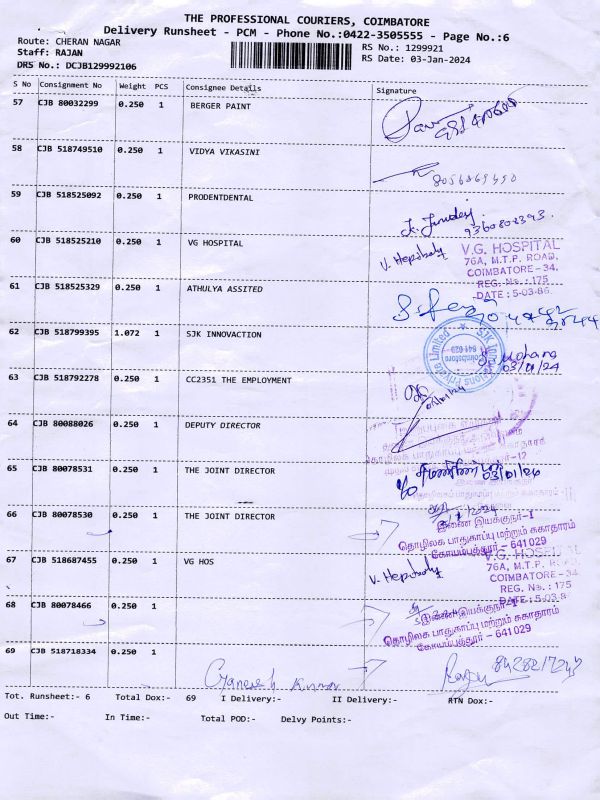 THE PROFESSIONAL COURIERS, COIMBATORE
Delivery Runsheet - PCM - Phone No.:0422-3505555 - Page No.:6
Route: CHERAN NAGAR
RS No.: 1299921
Staff: RAJAN
RS Date: 03-Jan-2024
DRS No.: DCJB129992106
S No Consignment No Weight PCS Consignee Details Signature
57 CJB 80032299 0.250 1 BERGER PAINT
58 CJB 518749510 0.250 1 VIDYA VIKASINI
8056869490
59 CJB 518525092 0.250 1 PRODENTDENTAL
9360802393.
60 CJB 518525210 0.250 1 VG HOSPITAL V. Hepsibah
V.G. HOSPITAL
76A, M.T.P. ROAD,
COIMBATORE - 34.
REG. No. : 175
DATE : 5-03-86.
61 CJB 518525329 0.250 1 ATHULYA ASSITED
62 CJB 518799395 1.072 1 SJK INNOVACTION
S. Mohana
03/01/24
63 CJB 518792278 0.250 1 CC2351 THE EMPLOYMENT
64 CJB 80088026 0.250 1 DEPUTY DIRECTOR
65 CJB 80078531 0.250 1 THE JOINT DIRECTOR
03/01/24
66 CJB 80078530 0.250 1 THE JOINT DIRECTOR
இணை இயக்குநர்-I
தொழிலக பாதுகாப்பு மற்றும் சுகாதாரம்
கோயம்புத்தூர் - 641 029
67 CJB 518687455 0.250 1 VG HOS V. Hepsibah
V.G. HOSPITAL
76A, M.T.P. ROAD,
COIMBATORE - 34
REG. No. : 175
DATE : 5-03-8
68 CJB 80078466 0.250 1
இணை இயக்குநர்-I
தொழிலக பாதுகாப்பு மற்றும் சுகாதாரம்
கோயம்புத்தூர் - 641 029
69 CJB 518718334 0.250 1
Ganesh Kumar
Tot. Runsheet:- 6 Total Dox:- 69 I Delivery:- II Delivery:- RTN Dox:-
Out Time:- In Time:- Total POD:- Delvy Points:-